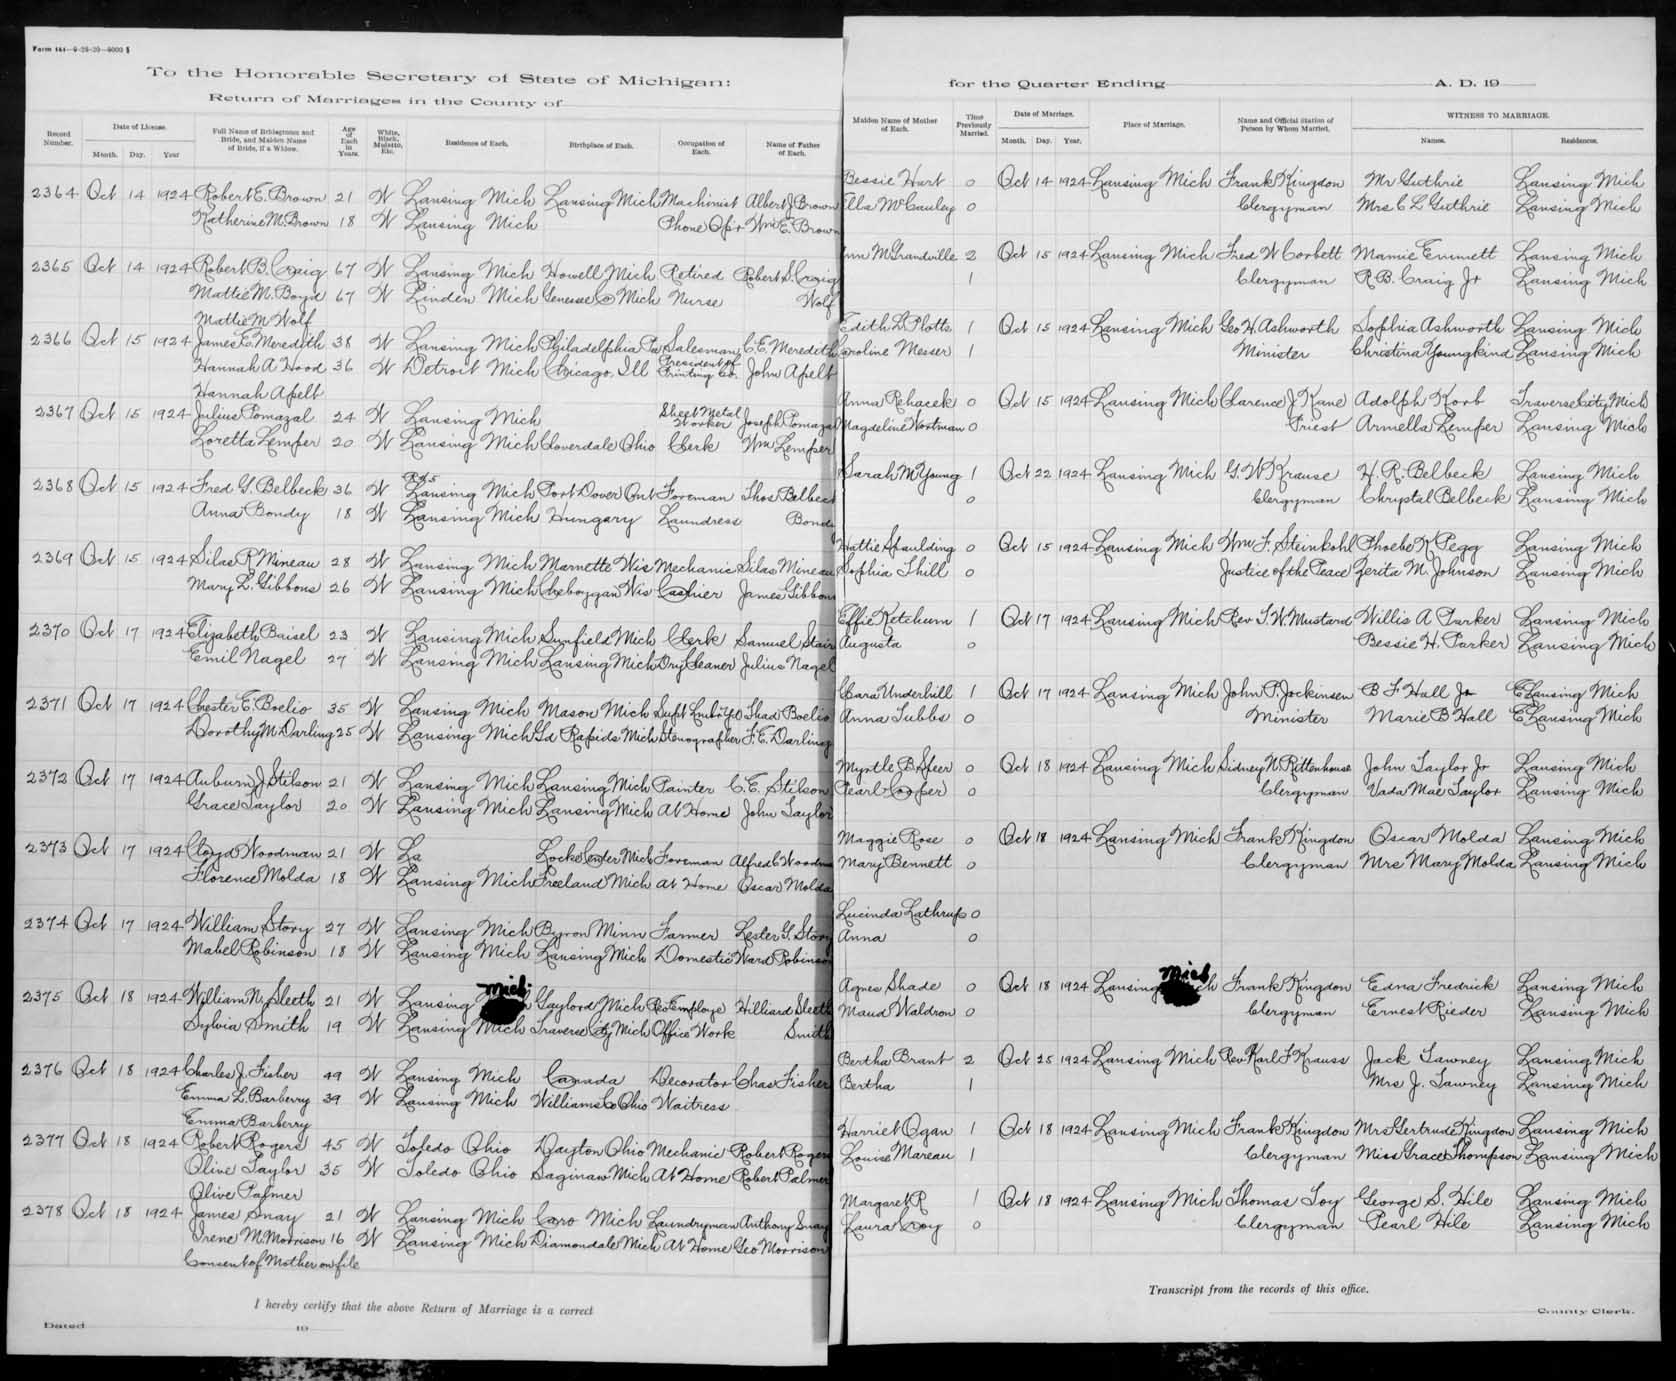 Form 164—9-28-20—8000 S
To the Honorable Secretary of State of Michigan:
Return of Marriages in the County of
for the Quarter Ending A. D. 19
Record Number. Date of License. Month. Day. Year Full Name of Bridegroom and Bride, and Maiden Name of Bride, if a Widow. Age of Each in Years. White, Black, Mulatto, Etc. Residence of Each. Birthplace of Each. Occupation of Each. Name of Father of Each. Maiden Name of Mother of Each. Time Previously Married. Date of Marriage. Month. Day. Year. Place of Marriage. Name and Official Station of Person by Whom Married. WITNESS TO MARRIAGE. Names. Residences.
2364 Oct 14 1924 Robert E. Brown 21 W Lansing Mich Lansing Mich Machinist Albert J Brown Bessie Hart 0 Oct 14 1924 Lansing Mich Frank Kingdon Mr Guthrie Lansing Mich
Katherine M. Brown 18 W Lansing Mich Phone Opr Wm E. Brown Ella McCauley 0 Clergyman Mrs C L Guthrie Lansing Mich
2365 Oct 14 1924 Robert B. Craig 67 W Lansing Mich Howell Mich Retired Robert S. Craig Ann McGrandville 2 Oct 15 1924 Lansing Mich Fred W Corbett Mamie Emmett Lansing Mich
Mattie M. Boyd 67 W Linden Mich Genesee Co Mich Nurse Wolf 1 Clergyman R B. Craig Jr Lansing Mich
Mattie M Wolf
2366 Oct 15 1924 James E. Meredith 38 W Lansing Mich Philadelphia Pa Salesman C. E. Meredith Edith L Plotts 1 Oct 15 1924 Lansing Mich Geo H. Ashworth Sophia Ashworth Lansing Mich
Hannah A Hood 36 W Detroit Mich Chicago, Ill President of Printing Co. John Apelt Caroline Messer 1 Minister Christina Youngkind Lansing Mich
Hannah Apelt
2367 Oct 15 1924 Julius Pomazal 24 W Lansing Mich Sheet Metal Worker Joseph Pomazal Anna Rehacek 0 Oct 15 1924 Lansing Mich Clarence J Kane Adolph Korb Traverse City Mich
Loretta Lemper 20 W Lansing Mich Cloverdale Ohio Clerk Wm Lemper Magdeline Wortman 0 Priest Armella Lemper Lansing Mich
2368 Oct 15 1924 Fred G. Belbeck 36 W R#5 Lansing Mich Port Dover Ont Foreman Thos Belbeck Sarah M Young 1 Oct 22 1924 Lansing Mich G. W Krause H. R. Belbeck Lansing Mich
Anna Bondy 18 W Lansing Mich Hungary Laundress Bondy 0 Clergyman Chrystal Belbeck Lansing Mich
2369 Oct 15 1924 Silas R Mineau 28 W Lansing Mich Marnette Wis Mechanic Silas Mineau Hattie Spaulding 0 Oct 15 1924 Lansing Mich Wm F. Steinkohl Phoebe K Pegg Lansing Mich
Mary L. Gibbons 26 W Lansing Mich Cheboygan Wis Cashier James Gibbons Sophia Thill 0 Justice of the Peace Zerita M. Johnson Lansing Mich
2370 Oct 17 1924 Elizabeth Baisel 23 W Lansing Mich Sunfield Mich Clerk Samuel Stair Effie Ketchum 1 Oct 17 1924 Lansing Mich Rev T. W. Mustard Willis A Parker Lansing Mich
Emil Nagel 27 W Lansing Mich Lansing Mich Dry Cleaner Julius Nagel Augusta 0 Bessie H. Parker Lansing Mich
2371 Oct 17 1924 Chester E. Boelio 35 W Lansing Mich Mason Mich Supt Thad Boelio Clara Underhill 1 Oct 17 1924 Lansing Mich John P. Jockinsen B F Hall Jr E Lansing Mich
Dorothy M Darling 25 W Lansing Mich Gd Rapids Mich Stenographer F. E. Darling Anna Tubbs 0 Minister Marie B Hall E Lansing Mich
2372 Oct 17 1924 Auburn J. Stilson 21 W Lansing Mich Lansing Mich Painter C. E. Stilson Myrtle B Speer 0 Oct 18 1924 Lansing Mich Sidney N. Rittenhouse John Taylor Jr Lansing Mich
Grace Taylor 20 W Lansing Mich Lansing Mich At Home John Taylor Pearl Cooper 0 Clergyman Vada Mae Taylor Lansing Mich
2373 Oct 17 1924 Cloyd Woodman 21 W La Locke Center Mich Foreman Alfred C Woodman Maggie Rose 0 Oct 18 1924 Lansing Mich Frank Kingdon Oscar Molda Lansing Mich
Florence Molda 18 W Lansing Mich Freeland Mich At Home Oscar Molda Mary Bennett 0 Clergyman Mrs Mary Molda Lansing Mich
2374 Oct 17 1924 William Story 27 W Lansing Mich Byron Minn Farmer Lester G. Story Lucinda Lathrup 0
Mabel Robinson 18 W Lansing Mich Lansing Mich Domestic Ward Robinson Anna 0
2375 Oct 18 1924 William N. Sleeth 21 W Lansing Mich Gaylord Mich Reo Employe Hilliard Sleeth Agnes Shade 0 Oct 18 1924 Lansing Mich Frank Kingdon Edna Fredrick Lansing Mich
Sylvia Smith 19 W Lansing Mich Traverse City Mich Office Work Smith Maud Waldron 0 Clergyman Ernest Rieder Lansing Mich
2376 Oct 18 1924 Charles J. Fisher 49 W Lansing Mich Canada Decorator Chas Fisher Bertha Brant 2 Oct 25 1924 Lansing Mich Rev Karl F Krauss Jack Tawney Lansing Mich
Emma L. Barberry 39 W Lansing Mich Williams Co Ohio Waitress Bertha 1 Mrs J. Tawney Lansing Mich
Emma Barberry
2377 Oct 18 1924 Robert Rogers 45 W Toledo Ohio Dayton Ohio Mechanic Robert Rogers Harriet Ogan 1 Oct 18 1924 Lansing Mich Frank Kingdon Mrs Gertrude Kingdon Lansing Mich
Olive Taylor 35 W Toledo Ohio Saginaw Mich At Home Robert Palmer Louise Mareau 1 Clergyman Miss Grace Thompson Lansing Mich
Olive Palmer
2378 Oct 18 1924 James Smay 21 W Lansing Mich Caro Mich Laundryman Anthony Smay Margaret R 1 Oct 18 1924 Lansing Mich Thomas Toy George S. Hile Lansing Mich
Irene M. Morrison 16 W Lansing Mich Diamondale Mich At Home Geo Morrison Laura Croy 0 Clergyman Pearl Hile Lansing Mich
Consent of Mother on file
I hereby certify that the above Return of Marriage is a correct Transcript from the records of this office.
Dated 19 County Clerk.